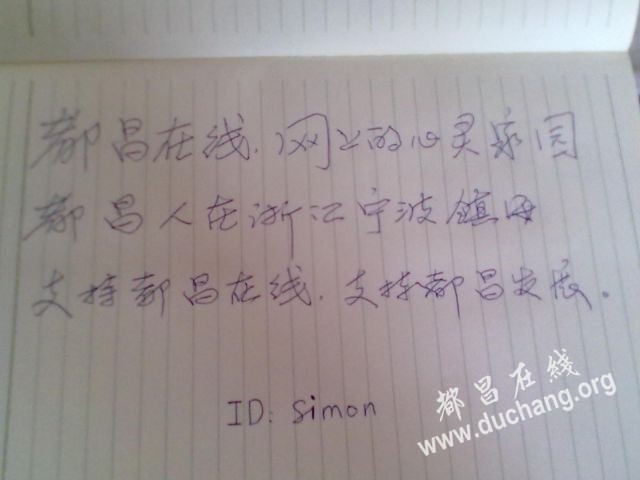 都昌在线.网上的心灵家园
都昌人在浙江宁波镇海
支持都昌在线.支持都昌发展。
ID: Simon
都昌在線
www.duchang.org